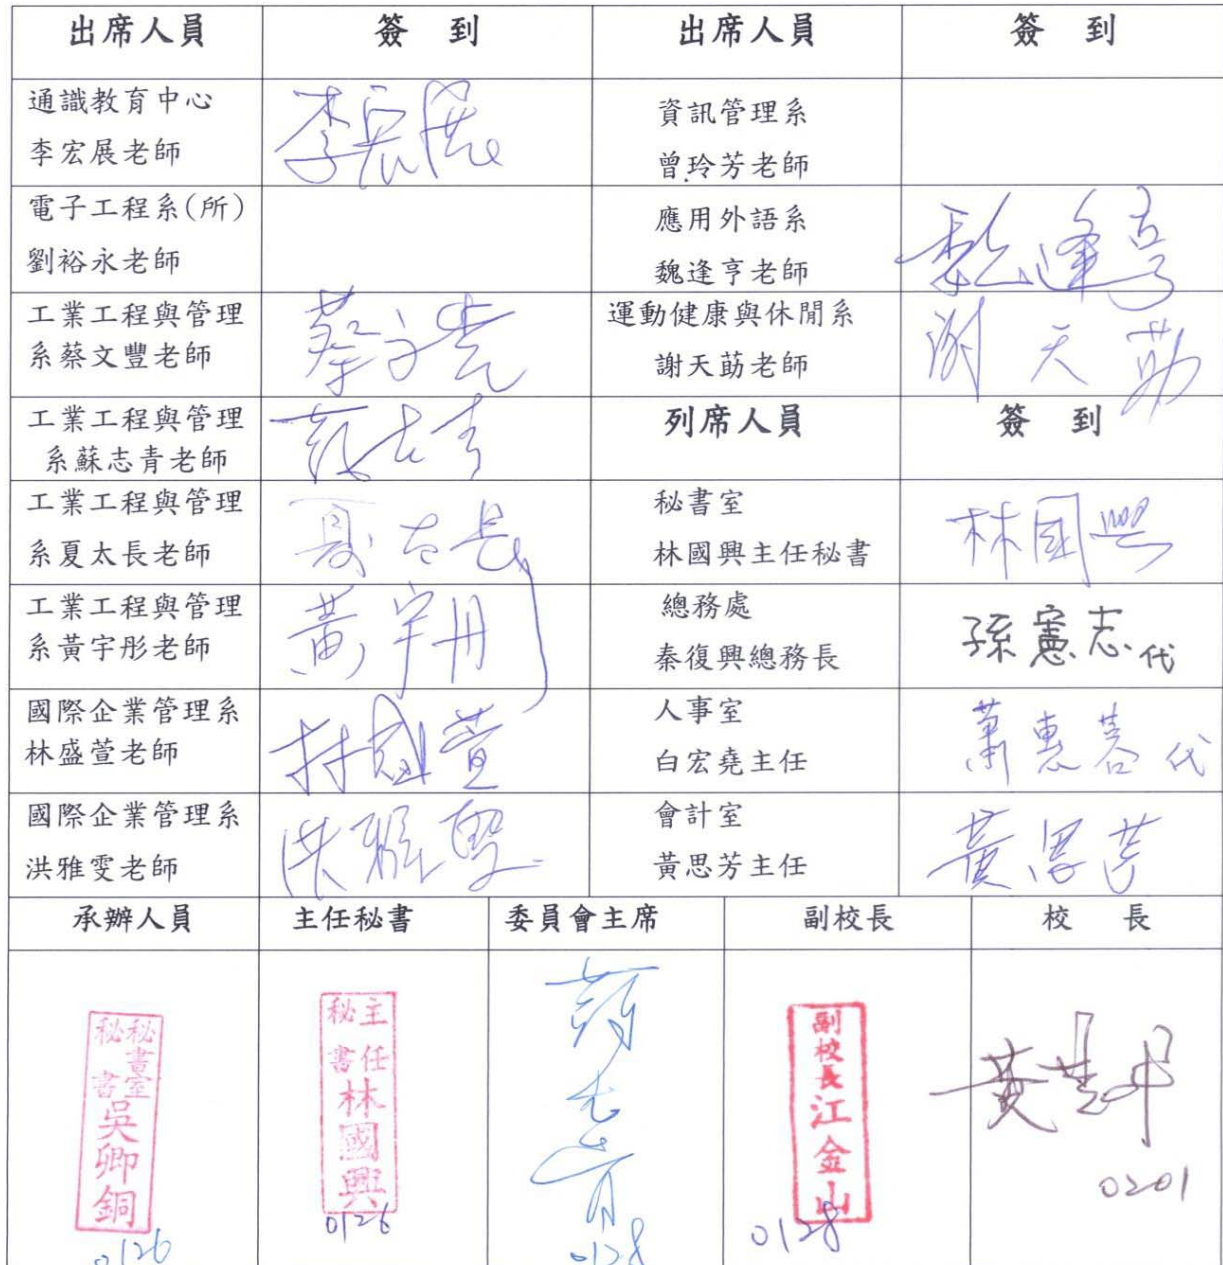 出席人員 簽 到 出席人員 簽 到
通識教育中心
李宏展老師
李宏展
資訊管理系
曾玲芳老師
電子工程系(所)
劉裕永老師
應用外語系
魏逢亨老師
魏逢亨
工業工程與管理
系蔡文豐老師
運動健康與休閒系
謝天勛老師
謝天勛
工業工程與管理
系蘇志青老師
列席人員 簽 到
工業工程與管理
系夏太長老師
夏太長
秘書室
林國興主任秘書
林國興
工業工程與管理
系黃宇彤老師
總務處
秦復興總務長
孫憲志代
國際企業管理系
林盛萱老師
人事室
白宏堯主任
蕭惠蓉代
國際企業管理系
洪雅雯老師
洪雅雯
會計室
黃思芳主任
黃思芳
承辦人員 主任秘書 委員會主席 副校長 校 長
秘書室
秘書
吳卿銅
0126
主任
秘書
林國興
0126
0128
副校長江金山
0128
0201